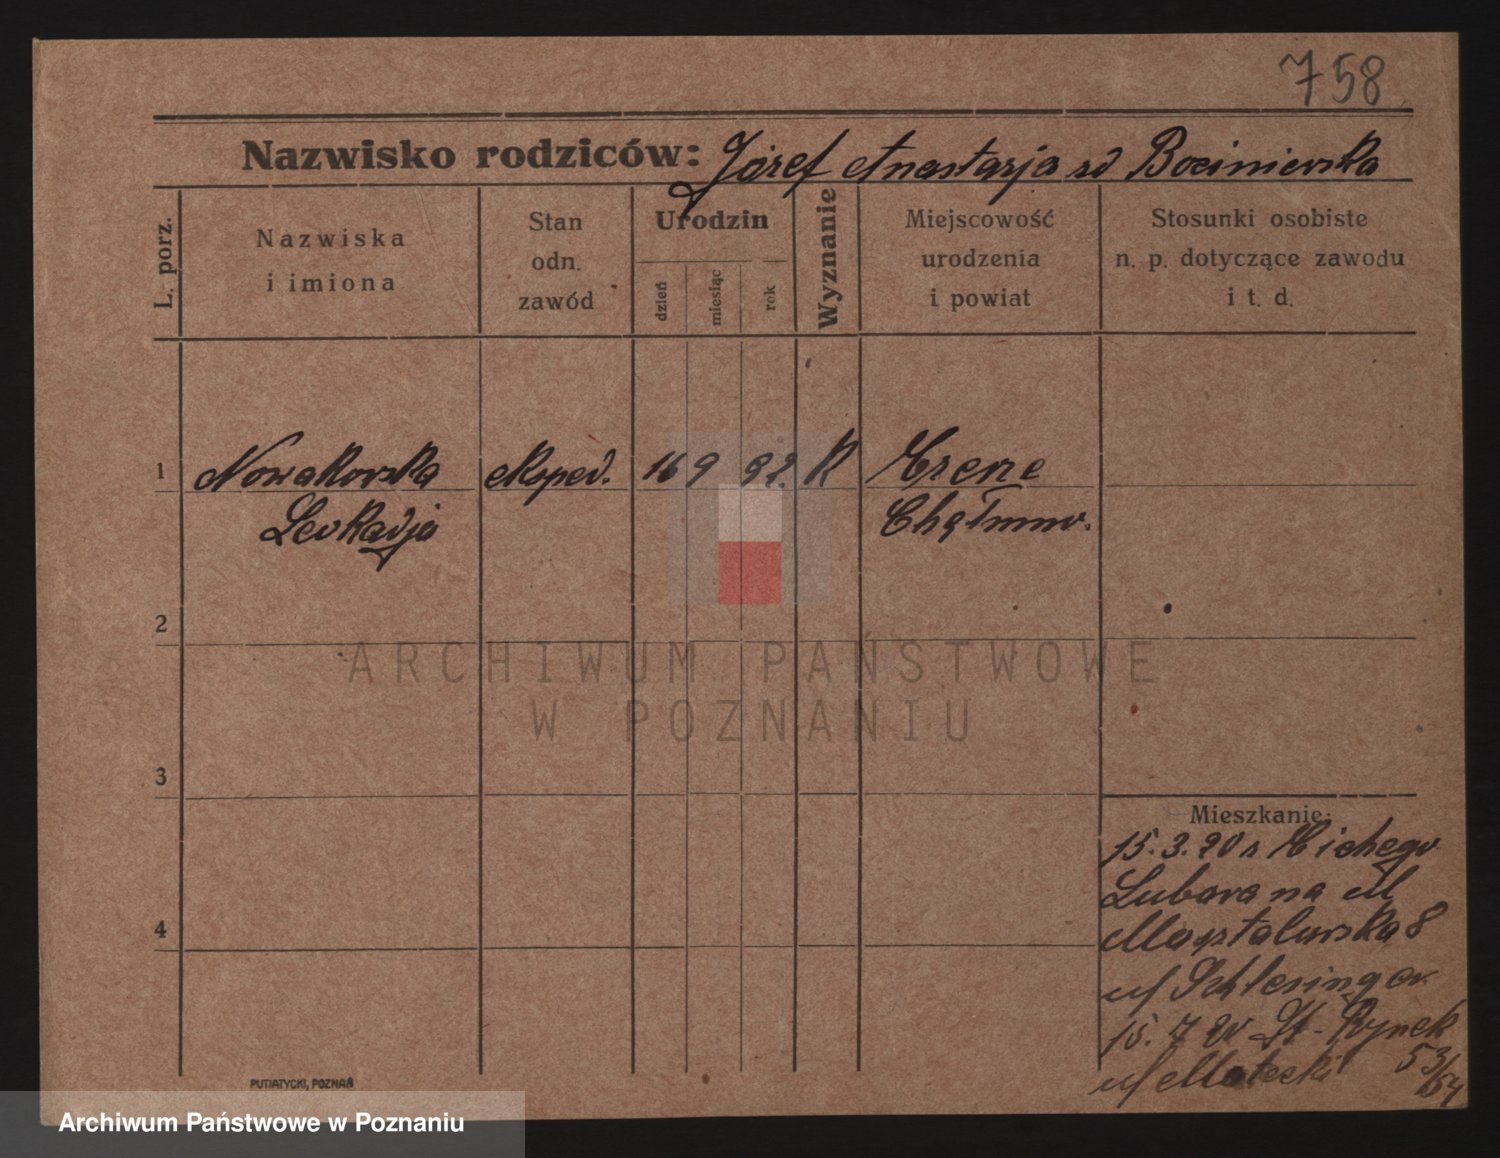 758
Nazwisko rodziców: Józef Anastazja zd Bociniewska
L. porz.
Nazwiska
i imiona
Stan
odn.
zawód
Urodzin
dzień
miesiąc
rok
Wyznanie
Miejscowość
urodzenia
i powiat
Stosunki osobiste
n. p. dotyczące zawodu
i t. d.
1 Nowakowska eksped. 16 9 92. K
Leokadja
2
ARCHIWUM PAŃSTWOWE
W POZNANIU
3
Mieszkanie:
15.3.20 z
Lubonia na
8
4
15. 7 20 St-Rynek
53/54
PUTIATYCKI, POZNAŃ
Archiwum Państwowe w Poznaniu